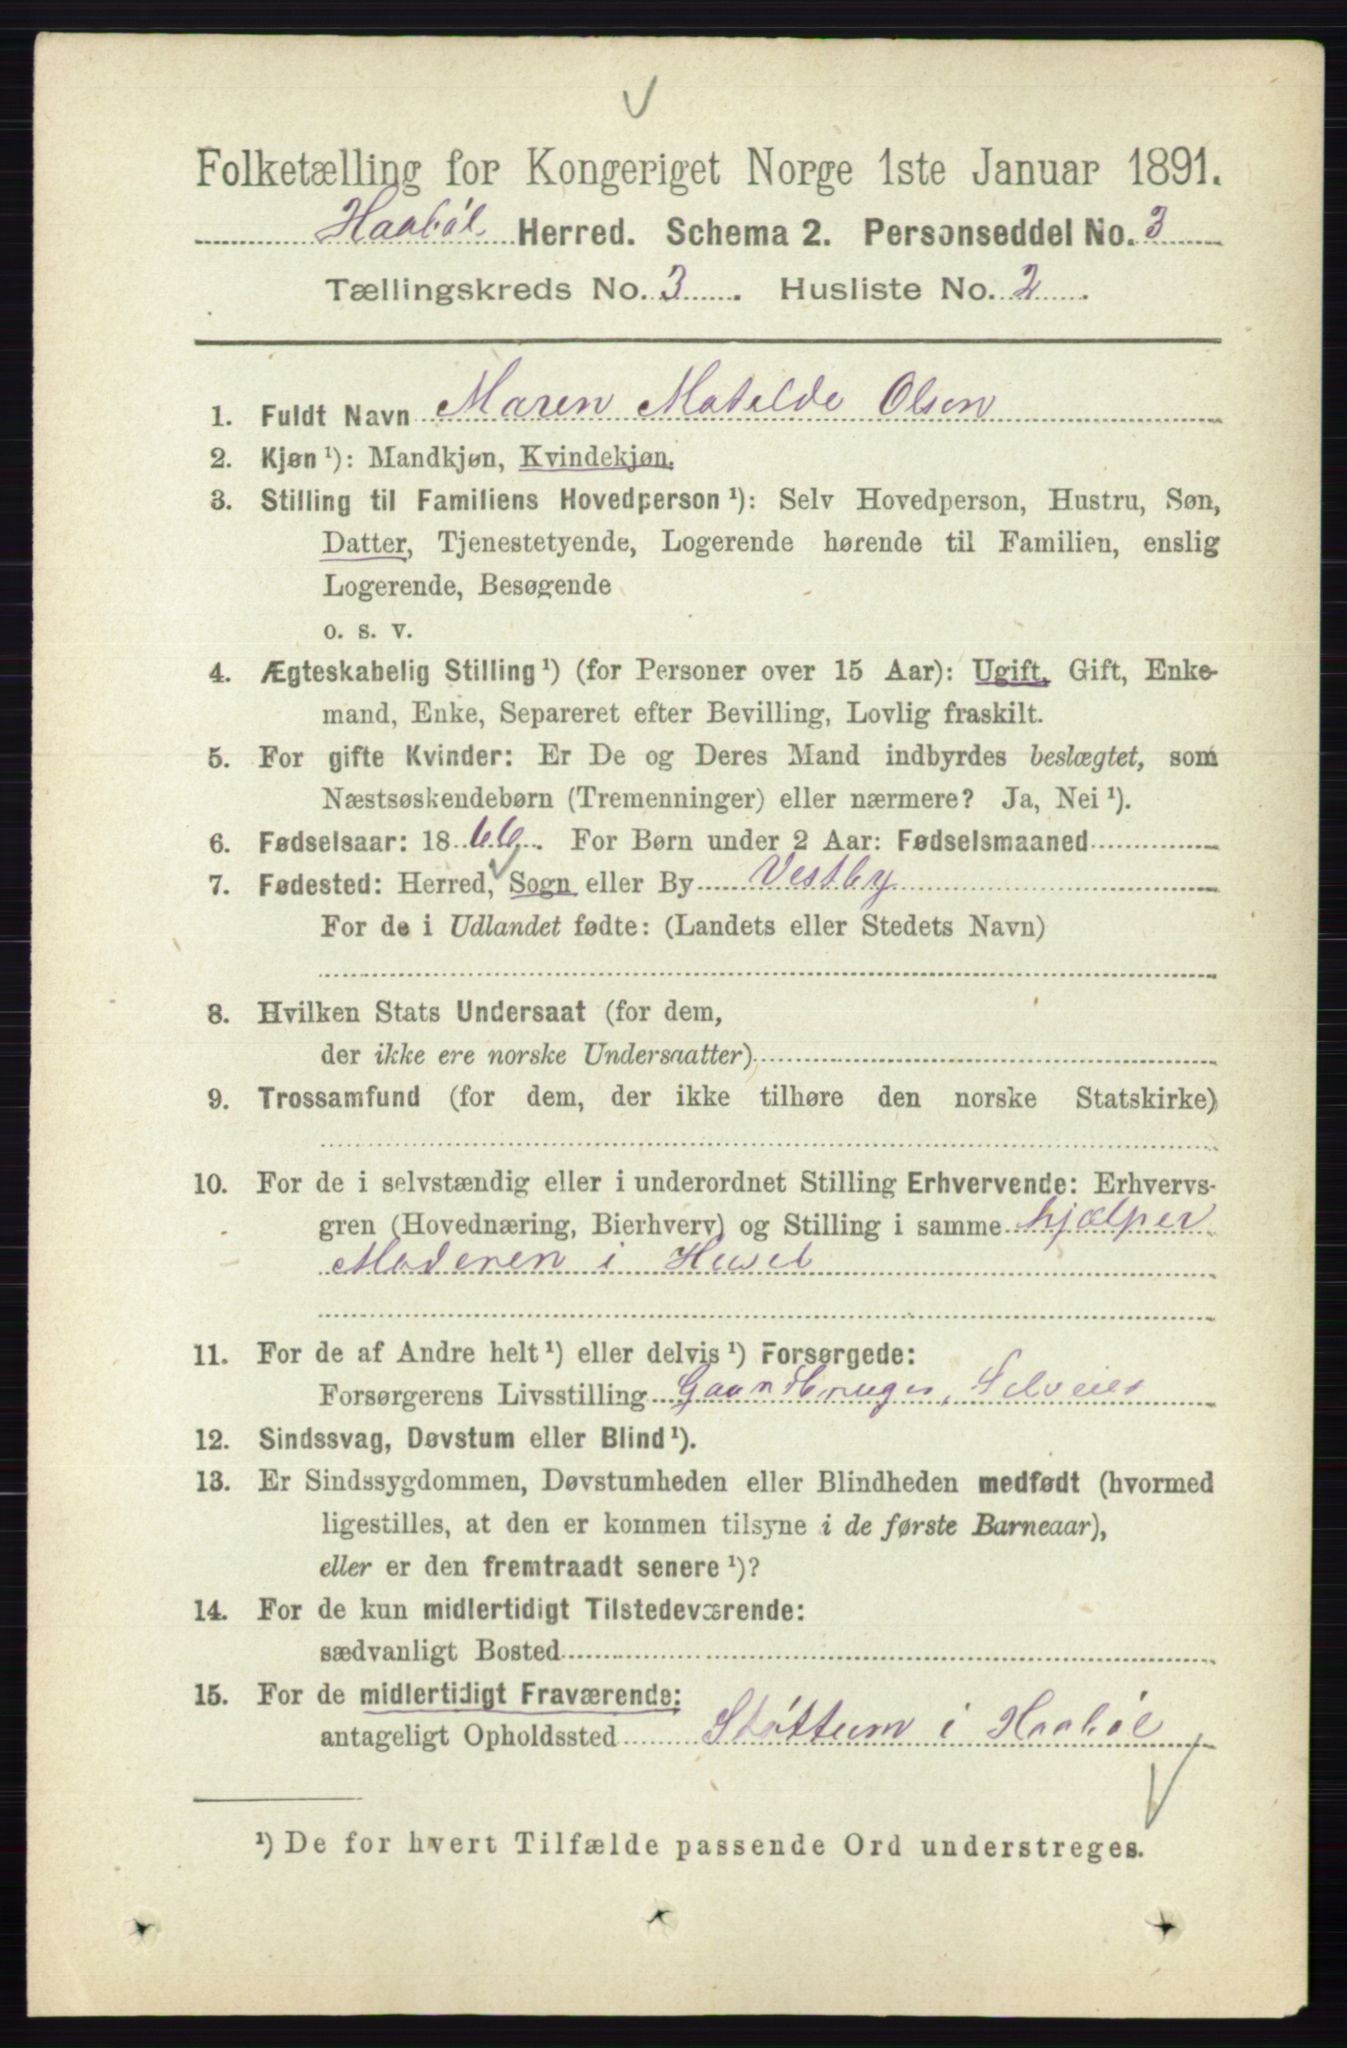 Folketælling for Kongeriget Norge 1ste Januar 1891.
Haabøl Herred. Schema 2. Personseddel No. 3
Tællingskreds No. 3. Husliste No. 2.
1. Fuldt Navn Maren Matilde Olsen
2. Kjøn ¹): Mandkjøn, Kvindekjøn.
3. Stilling til Familiens Hovedperson ¹): Selv Hovedperson, Hustru, Søn,
Datter, Tjenestetyende, Logerende hørende til Familien, enslig
Logerende, Besøgende
o. s. v.
4. Ægteskabelig Stilling ¹) (for Personer over 15 Aar): Ugift, Gift, Enke-
mand, Enke, Separeret efter Bevilling, Lovlig fraskilt.
5. For gifte Kvinder: Er De og Deres Mand indbyrdes beslægtet, som
Næstsøskendebørn (Tremenninger) eller nærmere? Ja, Nei ¹).
6. Fødselsaar: 1866. For Børn under 2 Aar: Fødselsmaaned
7. Fødested: Herred, Sogn eller By Vestby
For de i Udlandet fødte: (Landets eller Stedets Navn)
8. Hvilken Stats Undersaat (for dem,
der ikke ere norske Undersaatter)
9. Trossamfund (for dem, der ikke tilhøre den norske Statskirke)
10. For de i selvstændig eller i underordnet Stilling Erhvervende: Erhvervs-
gren (Hovednæring, Bierhverv) og Stilling i samme hjælper
Moderen i Huset
11. For de af Andre helt ¹) eller delvis ¹) Forsørgede:
Forsørgerens Livsstilling Gaardbruger, Selveier
12. Sindssvag, Døvstum eller Blind ¹).
13. Er Sindssygdommen, Døvstumheden eller Blindheden medfødt (hvormed
ligestilles, at den er kommen tilsyne i de første Barneaar),
eller er den fremtraadt senere ¹)?
14. For de kun midlertidigt Tilstedeværende:
sædvanligt Bosted
15. For de midlertidigt Fraværende:
antageligt Opholdssted Støttum i Haabøl
¹) De for hvert Tilfælde passende Ord understreges.